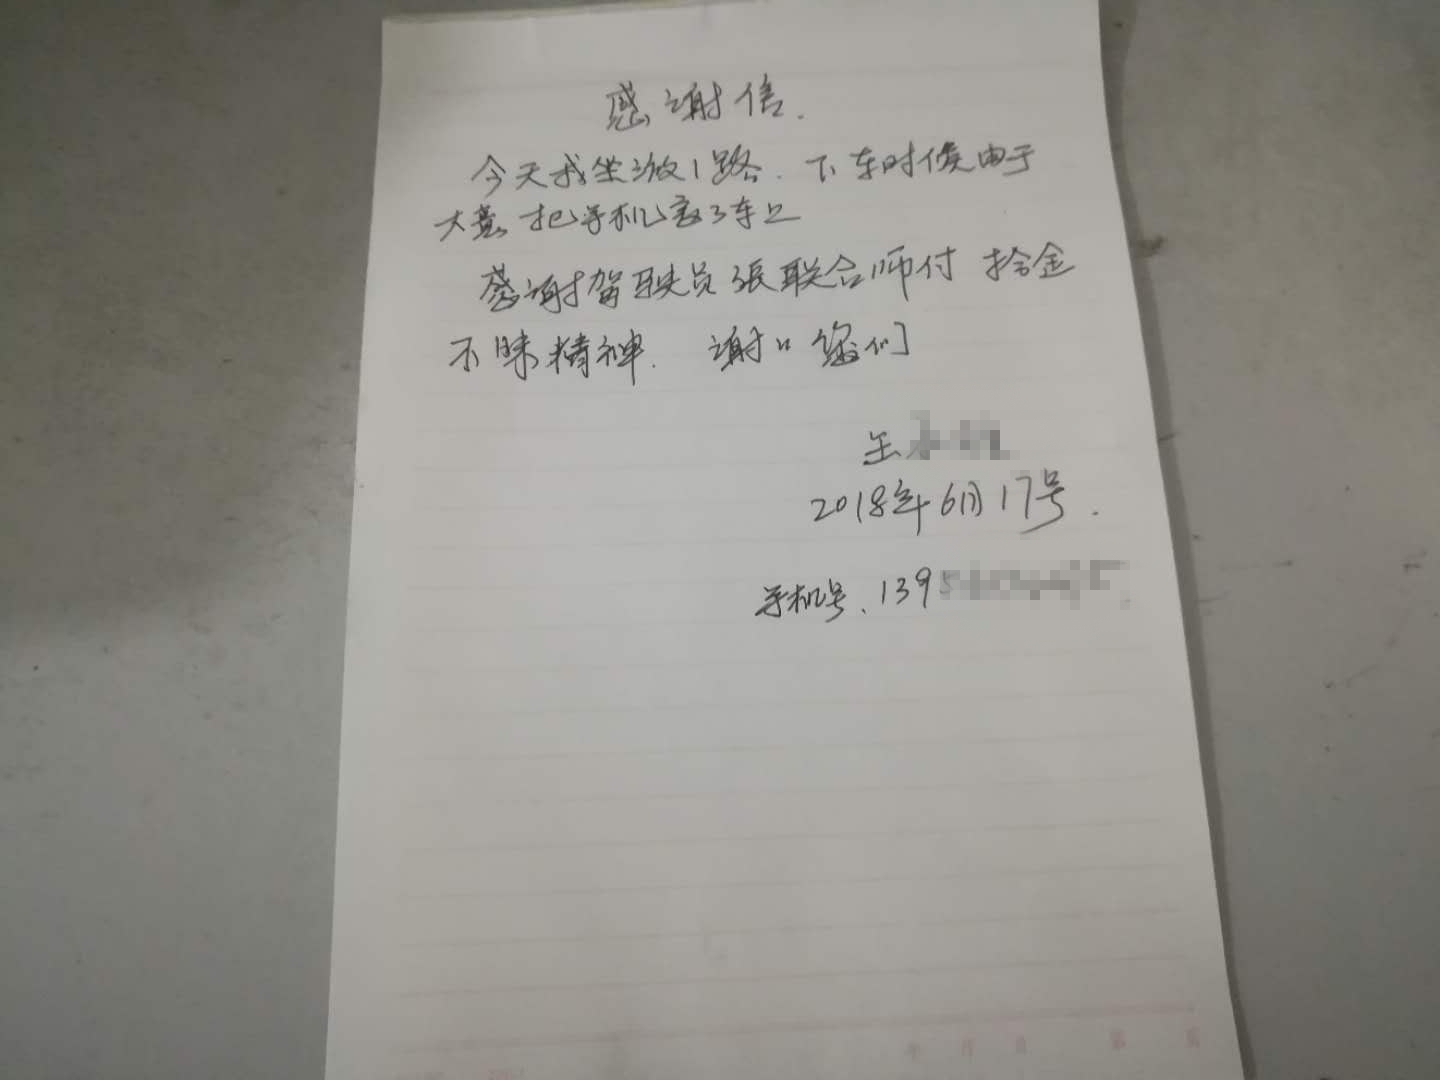 感谢信.
今天我坐游1路.下车时候由于
大意把手机忘了车上
感谢驾驶员张联合师付 拾金
不昧精神. 谢〃您们
2018年6月17号.
手机号、139
年 月 日 第 页